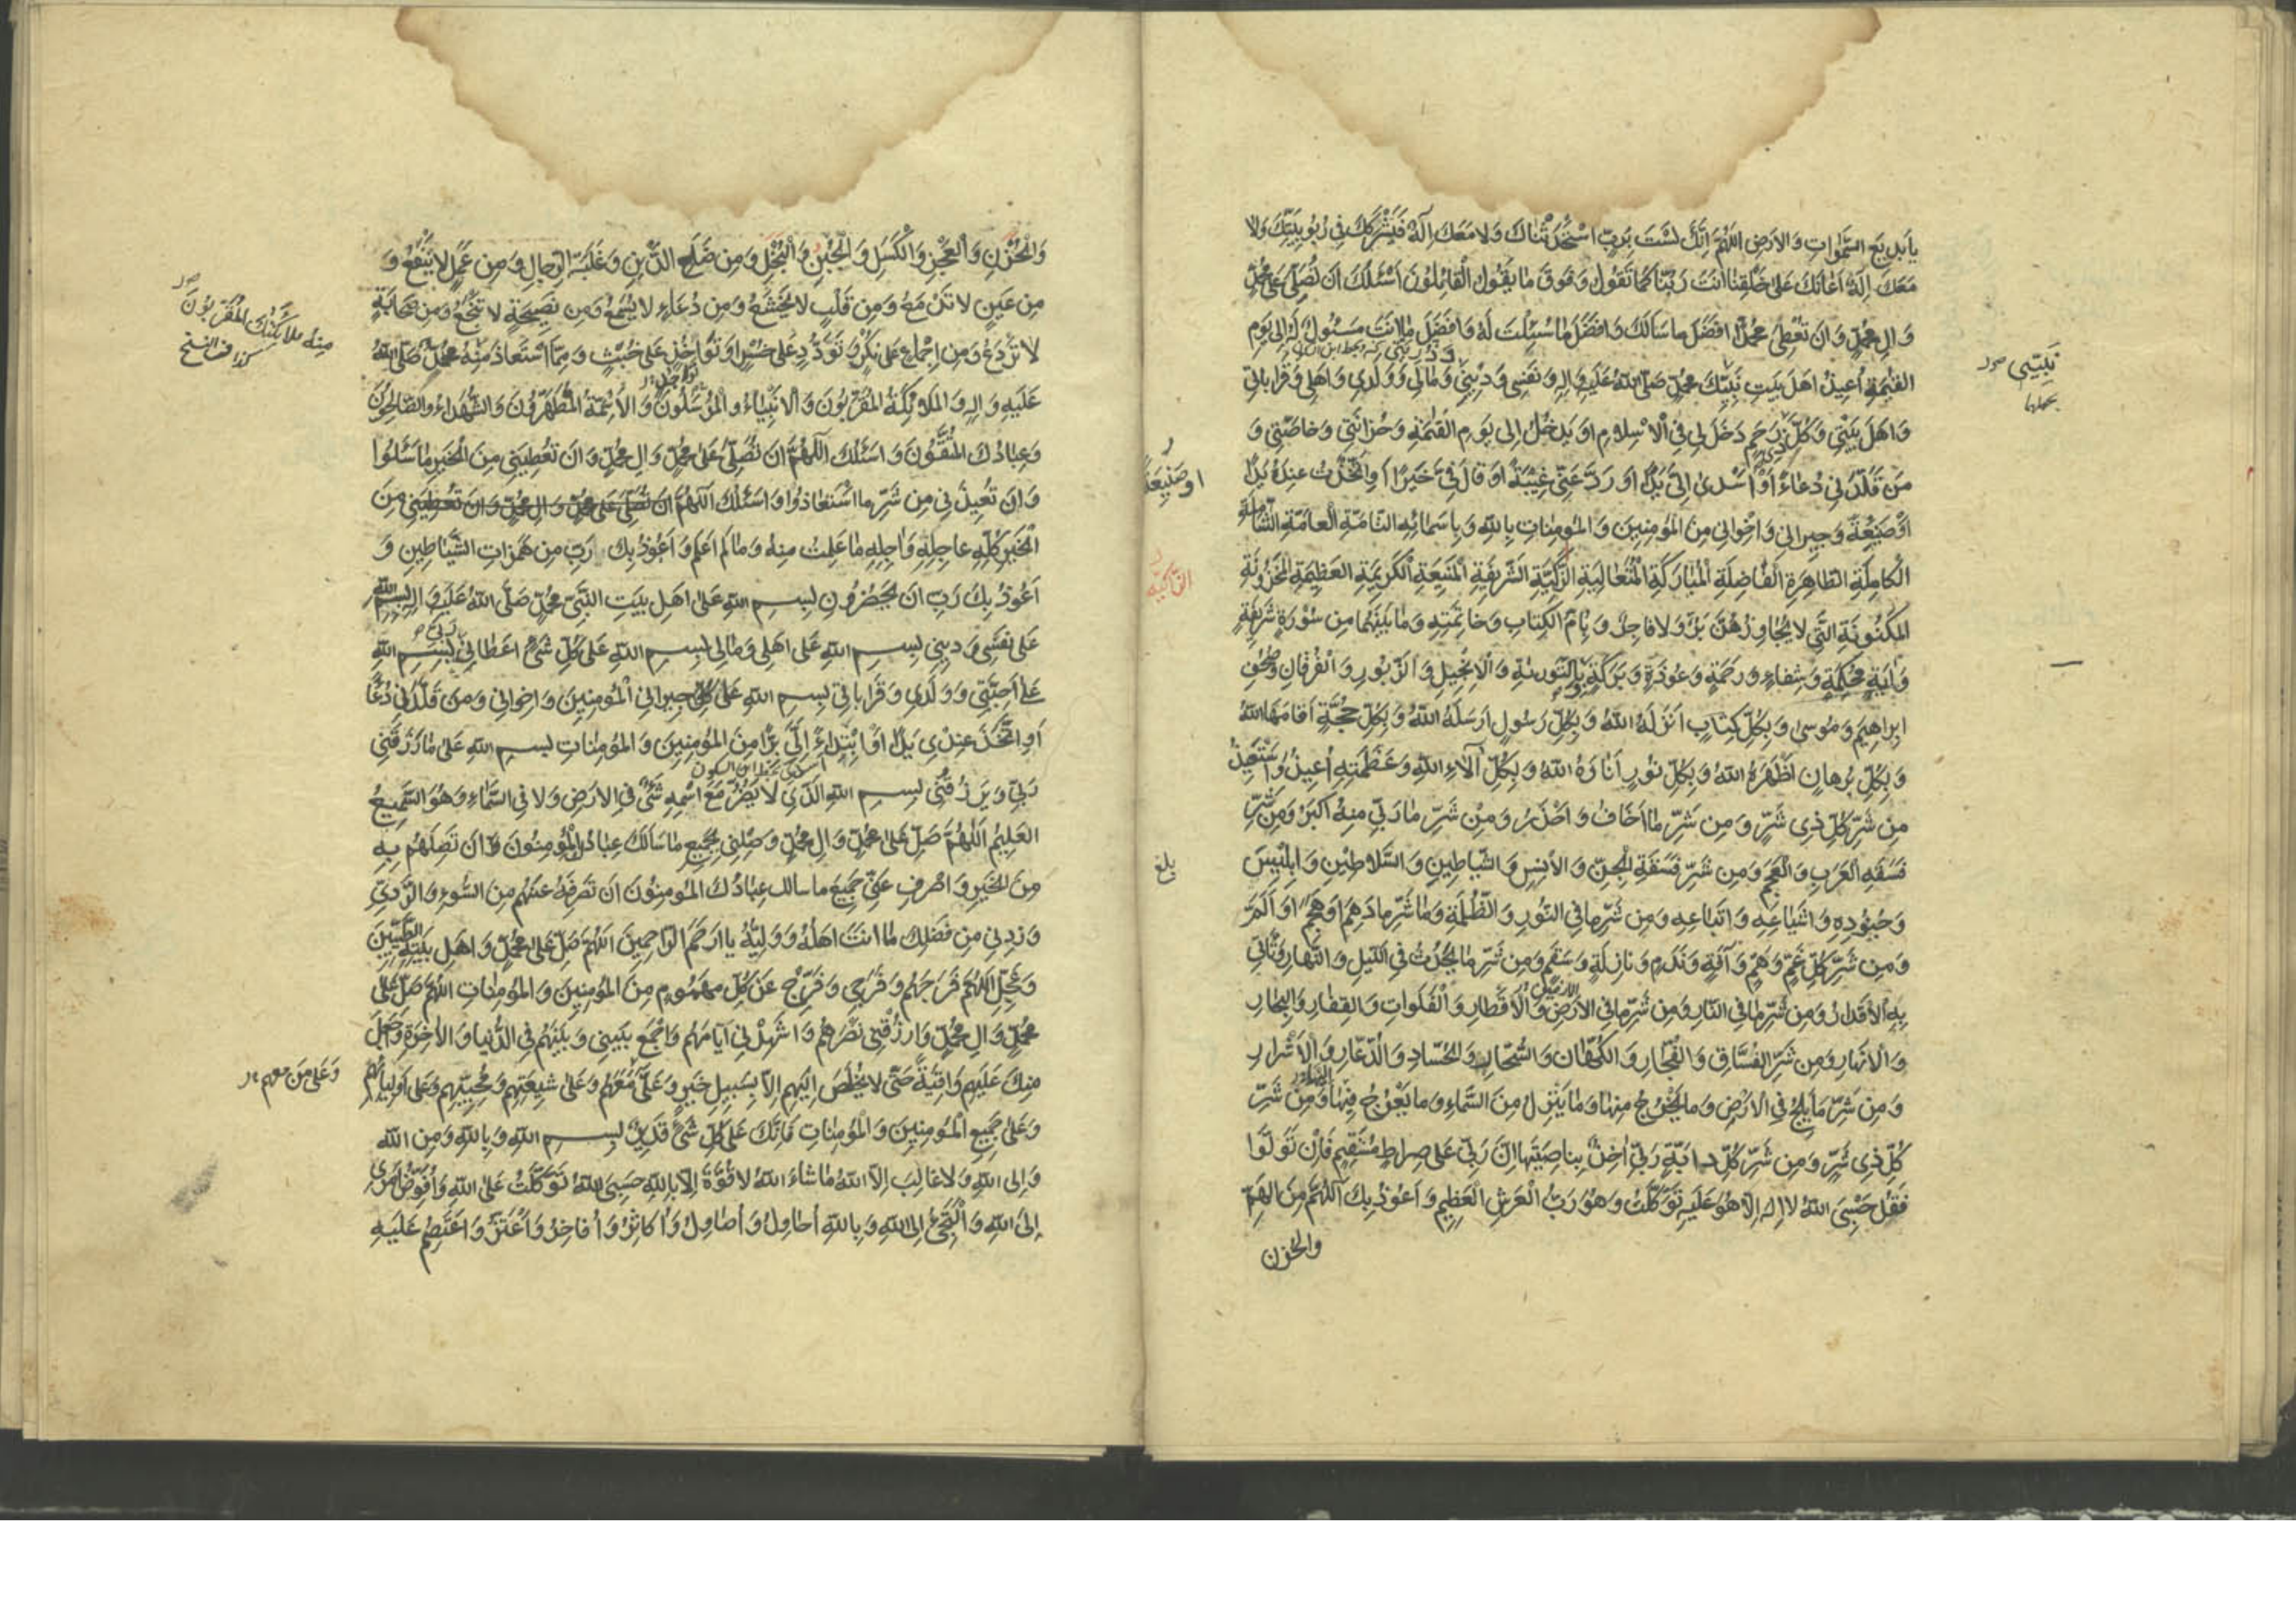 يا بديع السموات والارض اللهم انك لست برب استحدثناك ولا معك اله فيشركك في ربوبيتك ولا
معك اله اعانك على خلقنا انت ربنا كما تقول وفوق ما يقول القائلون اسئلك ان تصلي على محمد
وال محمد وان تعطي محمدا افضل ما سالك وافضل ما سئلت له وافضل ما انت مسئول له الى يوم
القيمة اعيذ اهل بيت نبيك محمد صلى الله عليه واله ونفسي وديني ومالي وولدي واهلي وقراباتي
واهل بيتي وكل ذي رحم دخل لي في الاسلام او يدخل الى يوم القيمة وحزانتي وخاصتي و
من قلدني دعاء او اسدى الي يدا او رد عني غيبة او قال في خيرا او اتخذت عنده يدا
او صنيعة وجيراني واخواني من المؤمنين والمؤمنات بالله وباسمائه التامة العامة الشاملة
الكاملة الطاهرة الفاضلة المباركة المتعالية الزكية الشريفة المنيعة الكريمة العظيمة المخزونة
المكنونة التي لا يجاوزهن بر ولا فاجر وبام الكتاب وخاتمته وما بينهما من سورة شريفة
واية محكمة وشفاء ورحمة وعوذة وبركة وبالتورية والانجيل والزبور والفرقان وصحف
ابراهيم وموسى وبكل كتاب انزله الله وبكل رسول ارسله الله وبكل حجة اقامها الله
وبكل برهان اظهره الله وبكل نور اناره الله وبكل آلاء الله وعظمته اعيذ واستعيذ
من شر كل ذي شر ومن شر ما اخاف واحذر ومن شر ما ربي منه اكبر ومن شر
فسقة العرب والعجم ومن شر فسقة الجن والانس والشياطين والسلاطين وابليس
وجنوده واشياعه واتباعه ومن شر ما في النور والظلمة وما شر ما دهم او هجم او الم
ومن شر كل غم وهم وآفة وندم ونازلة وسقم ومن شر ما يحدث في الليل والنهار وتاتي
به الاقدار ومن شر ما في النار ومن شر ما في الارض والاقطار والفلوات والقفار والبحار
والانهار ومن شر الفساق والفجار والكهان والسحار والحساد والذعار والاشرار
ومن شر ما يلج في الارض وما يخرج منها وما ينزل من السماء وما يعرج فيها ومن شر
كل ذي شر ومن شر كل دابة ربي اخذ بناصيتها ان ربي على صراط مستقيم فان تولوا
فقل حسبي الله لا اله الا هو عليه توكلت وهو رب العرش العظيم واعوذ بك اللهم من الهم
والحزن
نبيتي
او صنيعة
بلغ
والحزن والعجز والكسل والجبن والبخل ومن ضلع الدين وغلبة الرجال ومن عمل لا ينفع و
من عين لا تدمع ومن قلب لا يخشع ومن دعاء لا يسمع ومن نصيحة لا تنجع ومن صحابة
لا تردع ومن اجماع على نكر وتودد على خسر او تواخذ على خبث ومما استعاذ منه محمد صلى الله
عليه واله والملائكة المقربون والانبياء والمرسلون والائمة المطهرون والشهداء والصالحون
وعبادك المتقون واسئلك اللهم ان تصلي على محمد وال محمد وان تعطيني من الخير ما سئلوا
وان تعيذني من شر ما استعاذوا واسئلك اللهم ان تصلي على محمد وال محمد وان تعطيني من
الخير كله عاجله واجله ما علمت منه وما لم اعلم واعوذ بك رب من همزات الشياطين و
اعوذ بك رب ان يحضرون بسم الله على اهل بيت النبي محمد صلى الله عليه واله بسم الله
على نفسي وديني بسم الله على اهلي ومالي بسم الله على كل شئ اعطاني ربي بسم الله
على احبتي وولدي وقراباتي بسم الله على كل جيراني المؤمنين واخواني ومن قلدني دعاء
او اتخذ عندي يدا او ابتداء الي برا من المؤمنين والمؤمنات بسم الله على ما رزقني
ربي ويرزقني بسم الله الذي لا يضر مع اسمه شئ في الارض ولا في السماء وهو السميع
العليم اللهم صل على محمد وال محمد وصلني بجميع ما سالك عبادك المؤمنون ان تصلهم به
من الخير واصرف عني جميع ما سالك عبادك المؤمنون ان تصرفه عنهم من السوء والردي
وزدني من فضلك ما انت اهله ووليه يا ارحم الراحمين اللهم صل على محمد واهل بيته الطيبين
وعجل اللهم فرجهم وفرجي وفرج عن كل مهموم من المؤمنين والمؤمنات اللهم صل على
محمد وال محمد وارزقني نصرهم واشهدني ايامهم واجمع بيني وبينهم في الدنيا والاخرة واجعل
منك عليهم واقية حتى لا يخلص اليهم الا بسبيل خير وعلي معهم وعلى شيعتهم ومحبيهم وعلى اوليائهم
وعلى جميع المؤمنين والمؤمنات فانك على كل شئ قدير بسم الله وبالله ومن الله
والى الله ولا غالب الا الله ما شاء الله لا قوة الا بالله حسبي الله توكلت على الله وافوض امري
الى الله والتجئ الى الله وبالله احاول واصاول واكاثر وافاخر واعتز واعتصم عليه
منه ملائكتك المقربون
كذا في النسخ
وعلى من معهم